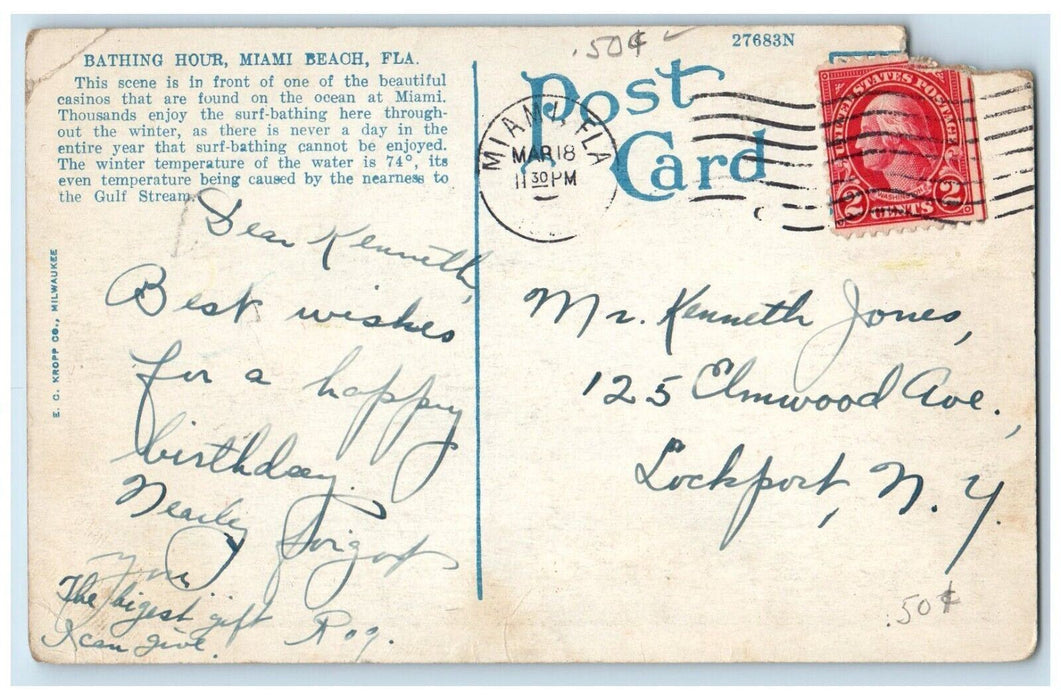 BATHING HOUR, MIAMI BEACH, FLA.
This scene is in front of one of the beautiful
casinos that are found on the ocean at Miami.
Thousands enjoy the surf-bathing here through-
out the winter, as there is never a day in the
entire year that surf-bathing cannot be enjoyed.
The winter temperature of the water is 74°, its
even temperature being caused by the nearness to
the Gulf Stream.
E. C. KROPP CO., MILWAUKEE
Dear Kenneth,
Best wishes
for a happy
birthday.
Nearly forgot
you
The bigest gift
I can give.
Roy.
.50¢
27683N
Post
Card
MIAMI, FLA
MAR 18
11 30 PM
UNITED STATES POSTAGE
WASHINGTON
2 CENTS 2
Mr. Kenneth Jones,
125 Elmwood Ave.,
Lockport, N. Y.
.50¢